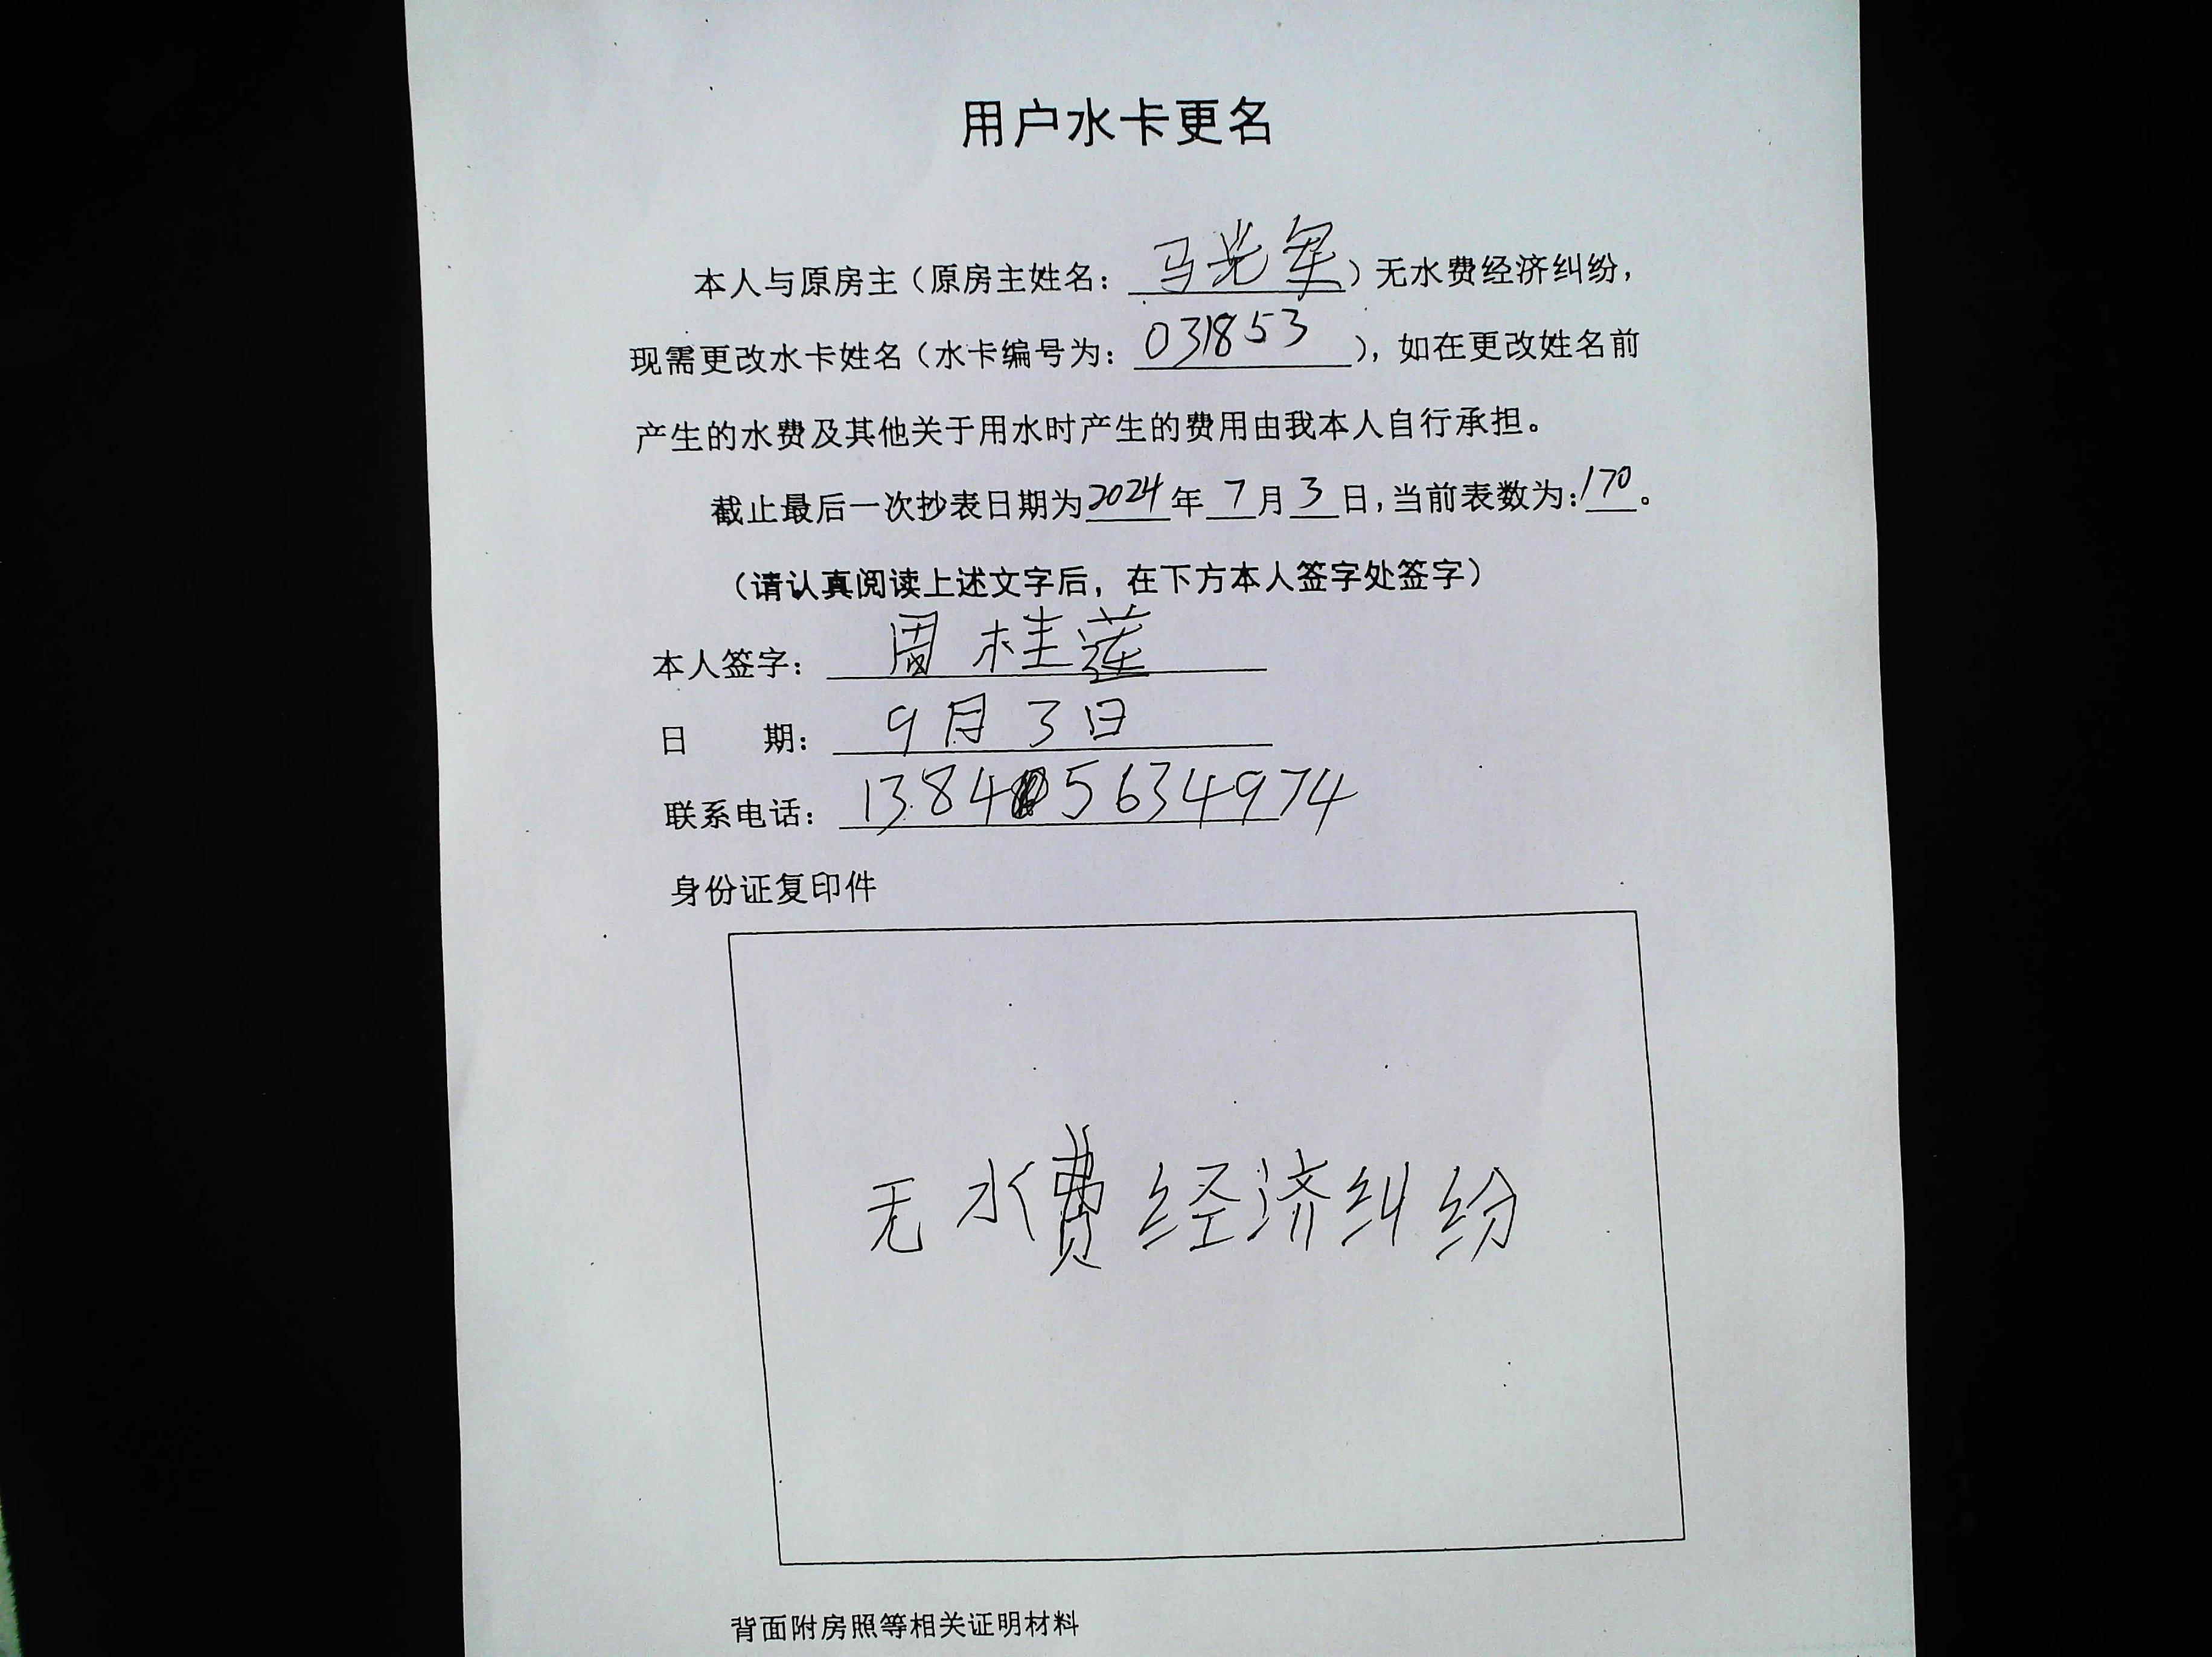 用户水卡更名
本人与原房主（原房主姓名：马光军）无水费经济纠纷，
现需更改水卡姓名（水卡编号为：031853），如在更改姓名前
产生的水费及其他关于用水时产生的费用由我本人自行承担。
截止最后一次抄表日期为2024年7月3日，当前表数为：170。
（请认真阅读上述文字后，在下方本人签字处签字）
本人签字：周桂莲
日 期：9月3日
联系电话：13845634974
身份证复印件
无水费经济纠纷
背面附房照等相关证明材料